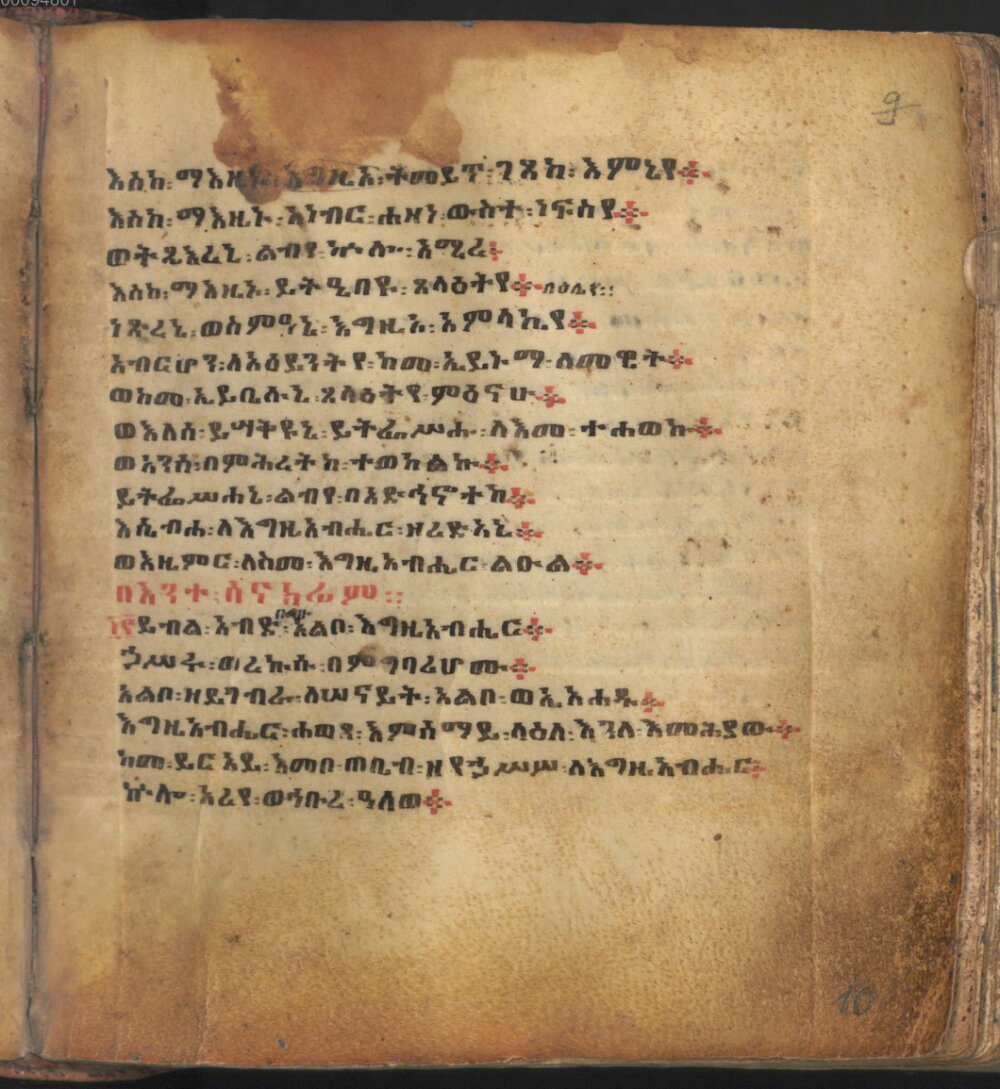 00094801
9
እስከ፡ማእዜኑ፡እግዚኦ፡ትመይጥ፡ገጸከ፡እምኔየ፨
እስከ፡ማእዜኑ፡አነብር፡ሐዘነ፡ውስተ፡ነፍስየ፨
ወትጼእረኒ፡ልብየ፡ኵሎ፡አሚረ፨
እስከ፡ማእዜኑ፡ይትዔበዩ፡ጸላዕትየ፨ላዕሌየ፡፡
ነጽረኒ፡ወስምዓኒ፡እግዚኦ፡አምላኪየ፨
አብርሆን፡ለአዕይንትየ፡ከመ፡ኢይኑማ፡ለመዊት፨
ወከመ፡ኢይቢሉኒ፡ጸላዕትየ፡ሞዕናሁ፨
ወእለሰ፡ይሣቅዩኒ፡ይትፌሥሑ፡ለእመ፡ተሐወኩ፨
ወአንሰ፡በምሕረትከ፡ተወከልኩ፨
ይትፌሥሐኒ፡ልብየ፡በአድኅኖትከ፨
እሴብሖ፡ለእግዚአብሔር፡ዘረድአኒ፨
ወእዜምር፡ለስመ፡እግዚአብሔር፡ልዑል፨
በእንተ፡ሰናክሬም፡፡
፲፫ይብል፡አብድ፡በልቡ፡አልቦ፡እግዚአብሔር፨
ኃሥሩ፡ወረኩሱ፡በምግባሪሆሙ፨
አልቦ፡ዘይገብራ፡ለሠናይት፡አልቦ፡ወኢአሐዱ፨
እግዚአብሔር፡ሐወጸ፡እምሰማይ፡ላዕለ፡እጓለ፡እመሕያው፨
ከመ፡ይርአይ፡እመቦ፡ጠቢብ፡ዘየኃሥሦ፡ለእግዚአብሔር፨
ኵሎ፡አረየ፡ወኅቡረ፡ዓለወ፨
10